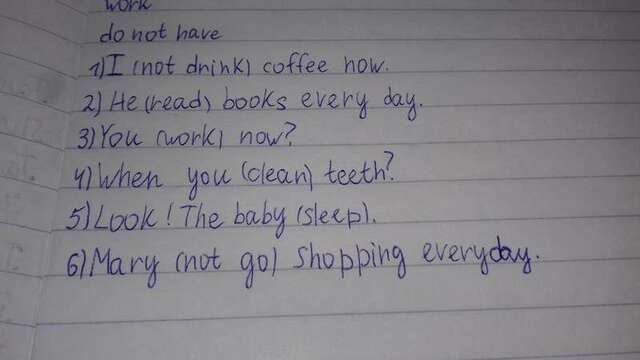 work
do not have
1) I (not drink) coffee now.
2) He (read) books every day.
3) You (work) now?
4) When you (clean) teeth?
5) Look! The baby (sleep).
6) Mary (not go) shopping everyday.